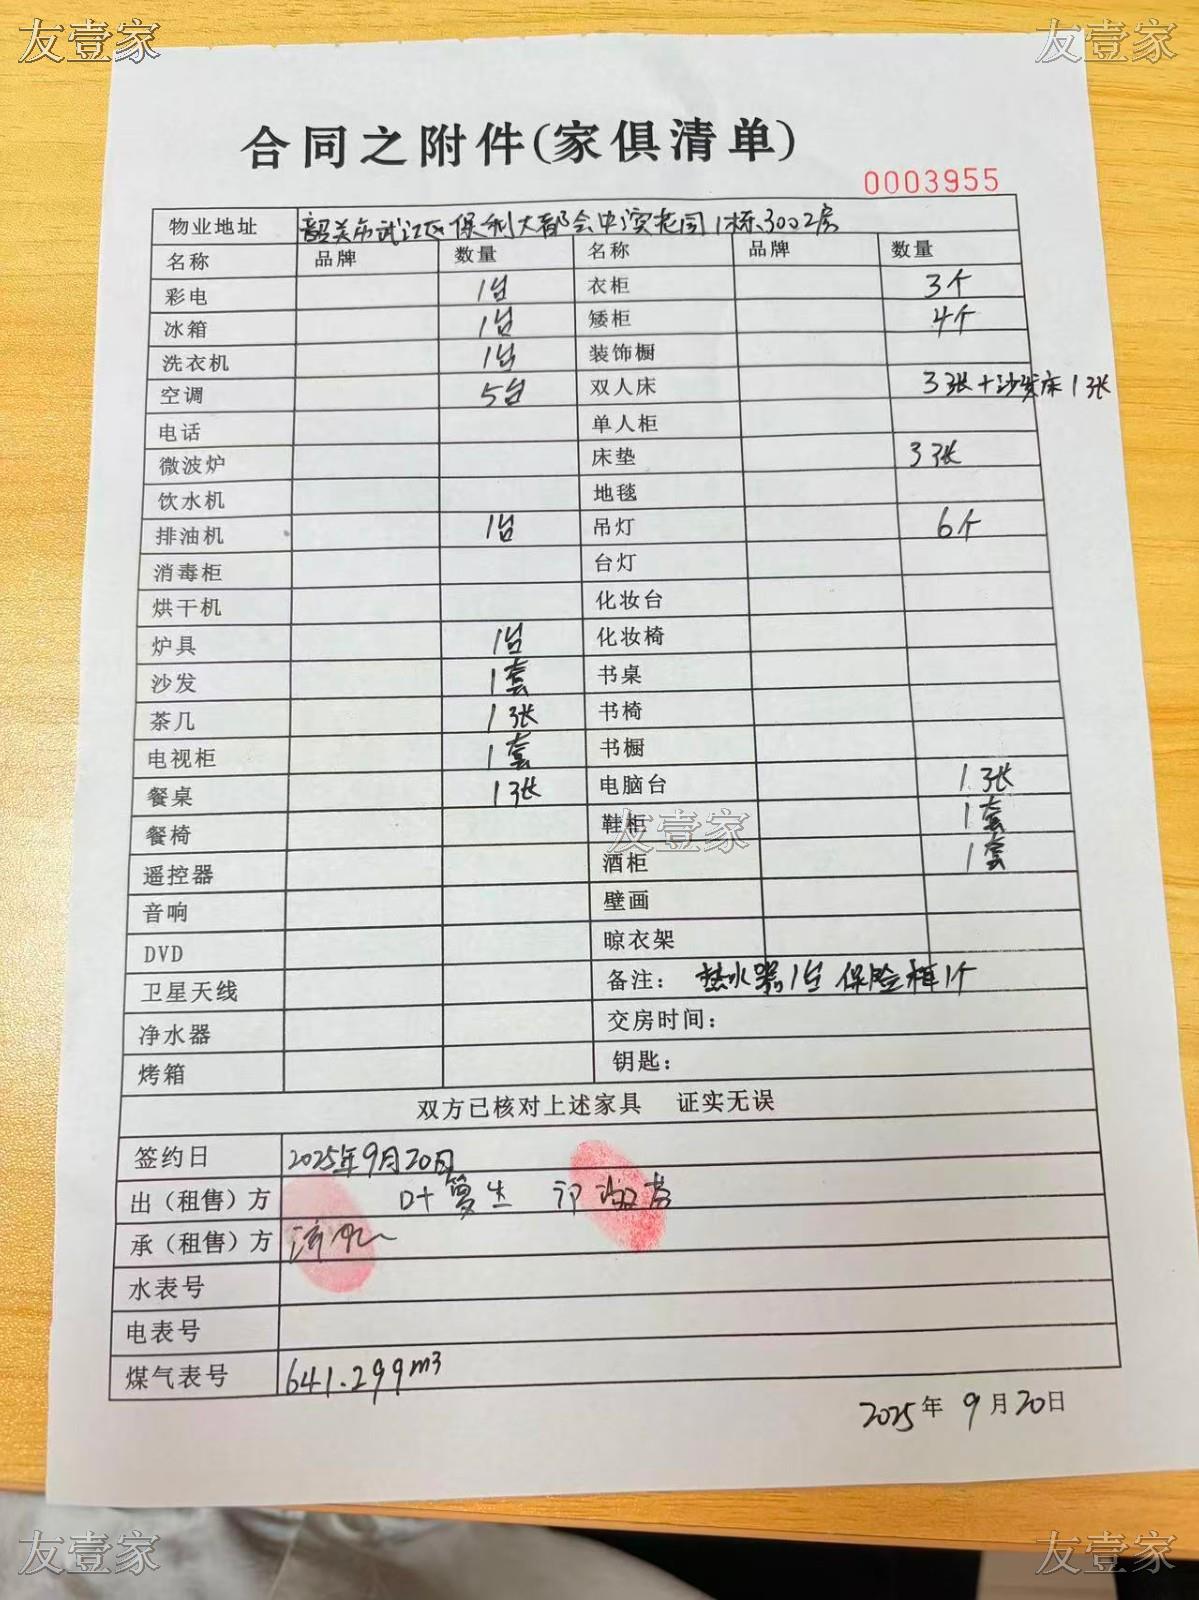 友壹家 友壹家
合同之附件(家俱清单)
0003955
物业地址 韶关市武江区保利大都会中滨花园1栋3002房
名称 品牌 数量 名称 品牌 数量
彩电 1台 衣柜 3个
冰箱 1台 矮柜 4个
洗衣机 1台 装饰橱
空调 5台 双人床 3张+沙发床1张
电话 单人柜
微波炉 床垫 3张
饮水机 地毯
排油机 1台 吊灯 6个
消毒柜 台灯
烘干机 化妆台
炉具 1台 化妆椅
沙发 1套 书桌
茶几 1张 书椅
电视柜 1套 书橱
餐桌 1张 电脑台 1张
餐椅 鞋柜 1套
友壹家
遥控器 酒柜 1套
音响 壁画
DVD 晾衣架
卫星天线 备注: 热水器1台 保险柜1个
净水器 交房时间:
烤箱 钥匙:
双方已核对上述家具 证实无误
签约日 2025年9月20日
出（租售）方 叶
承（租售）方
水表号
电表号
煤气表号 641.299m3
2025年 9月20日
友壹家 友壹家